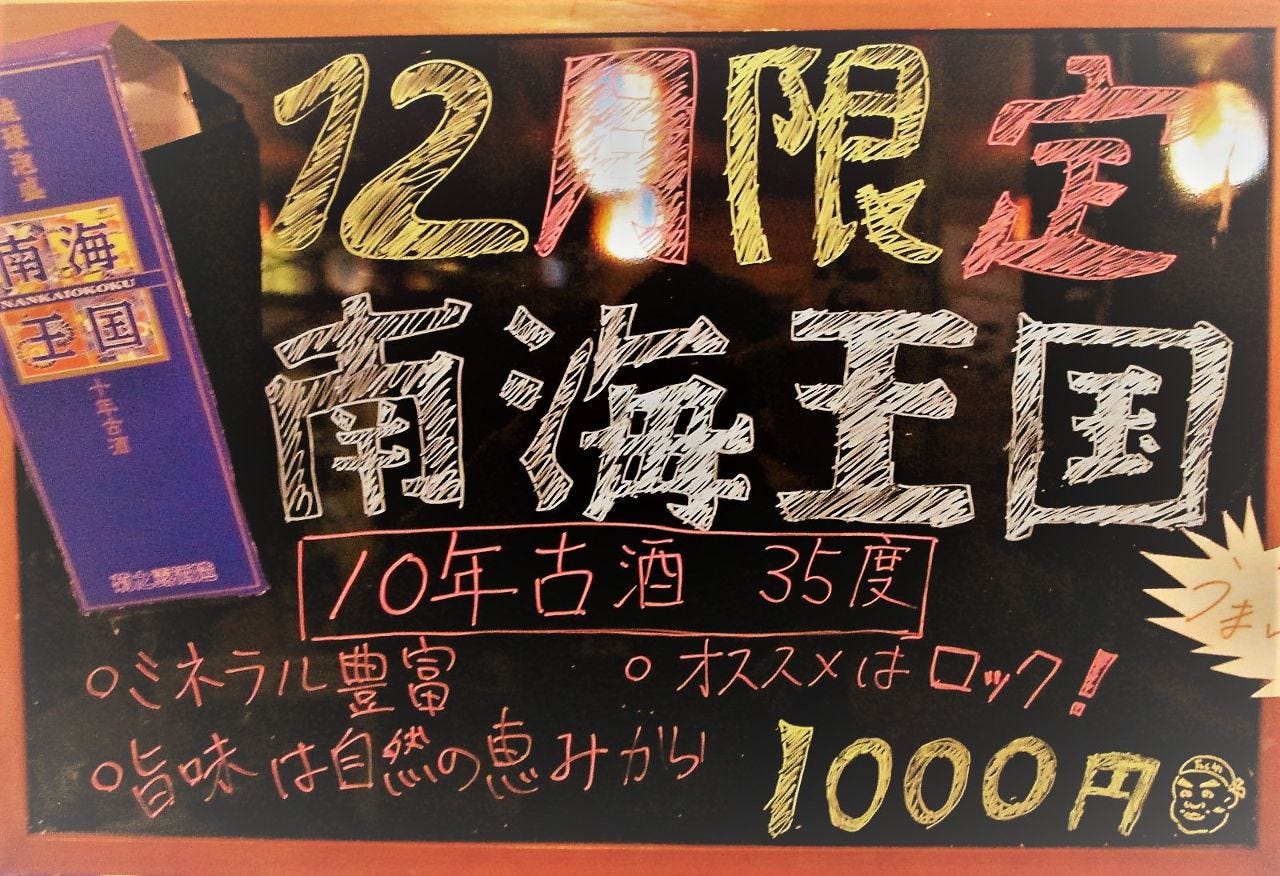 12月限定
南海王国
10年古酒 35度
○ミネラル豊富
○オススメはロック!
○旨味は自然の恵みから
1000円
うまい
琉球泡盛
南海
NANKAIOKOKU
王国
十年古酒